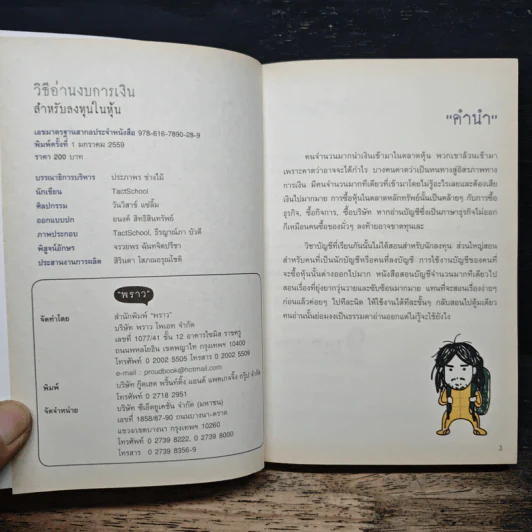 วิธีอ่านงบการเงิน
สำหรับลงทุนในหุ้น
เลขมาตรฐานสากลประจำหนังสือ 978-616-7890-28-9
พิมพ์ครั้งที่ 1 มกราคม 2559
ราคา 200 บาท
บรรณาธิการบริหาร ประภาพร ช่างไม้
นักเขียน TactSchool
ศิลปกรรม รันวิสาร์ แซ่ลิ้ม
ออกแบบปก อนงค์ สิทธิสินทรัพย์
ภาพประกอบ TactSchool, ธีรญาณ์ภา บัวดี
พิสูจน์อักษร จรวยพร ฉันทจิตปรีชา
ประสานงานการผลิต สิรินดา โสภณอรุณโชติ
"พราว"
จัดทำโดย สำนักพิมพ์ "พราว"
บริษัท พราว โพเอท จำกัด
เลขที่ 1077/41 ชั้น 12 อาคารโชมิส ราชครู
ถนนพหลโยธิน เขตพญาไท กรุงเทพฯ 10400
โทรศัพท์ 0 2002 5505 โทรสาร 0 2002 5509
e-mail : proudbook@hotmail.com
พิมพ์ บริษัท กู๊ดเฮด พริ้นท์ติ้ง แอนด์ แพคเกจจิ้ง กรุ๊ป จำกัด
โทรศัพท์ 0 2718 2951
จัดจำหน่าย บริษัท ซีเอ็ดยูเคชั่น จำกัด (มหาชน)
เลขที่ 1858/87-90 ถนนบางนา-ตราด
แขวง/เขตบางนา กรุงเทพฯ 10260
โทรศัพท์ 0 2739 8222, 0 2739 8000
โทรสาร 0 2739 8356-9
"คำนำ"
คนจำนวนมากนำเงินเข้ามาในตลาดหุ้น พวกเขาล้วนเข้ามา
เพราะคาดว่าอาจจะได้กำไร บางคนคาดว่าเป็นหนทางสู่อิสรภาพทาง
การเงิน มีคนจำนวนมากทีเดียวที่เข้ามาโดยไม่รู้อะไรเลยและต้องเสีย
เงินไปมากมาย การซื้อหุ้นในตลาดหลักทรัพย์นั้นเป็นคล้ายๆ กับการซื้อ
ธุรกิจ, ซื้อกิจการ, ซื้อบริษัท หากอ่านบัญชีซึ่งเป็นภาษาธุรกิจไม่ออก
ก็เหมือนคนซื้อของมั่วๆ ลงท้ายอาจขาดทุนเละ
วิชาบัญชีที่เรียนกันนั้นไม่ได้สอนสำหรับนักลงทุน ส่วนใหญ่สอน
สำหรับคนที่เป็นนักบัญชีหรือคนที่ลงบัญชี การใช้งานบัญชีของคนที่
จะซื้อหุ้นนั้นต่างออกไปมาก หนังสือสอนบัญชีจำนวนมากทีเดียวไป
สอนเรื่องที่ยุ่งยากวุ่นวายและซับซ้อนมากมาย แทนที่จะสอนเรื่องง่ายๆ
ก่อนแล้วค่อยๆ ไปทีละนิด ให้ใช้งานได้ทีละขั้นๆ กลับสอนไปตูมเดียว
คนอ่านนั้นย่อมงงเป็นธรรมดาอ่านออกแต่ไม่รู้จะใช้ยังไง
3